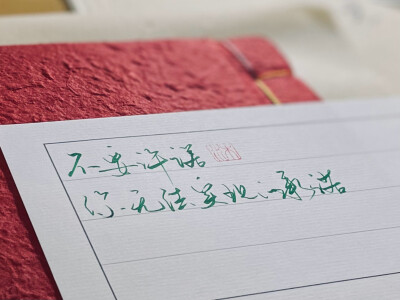 不要许诺
你无法实现的承诺